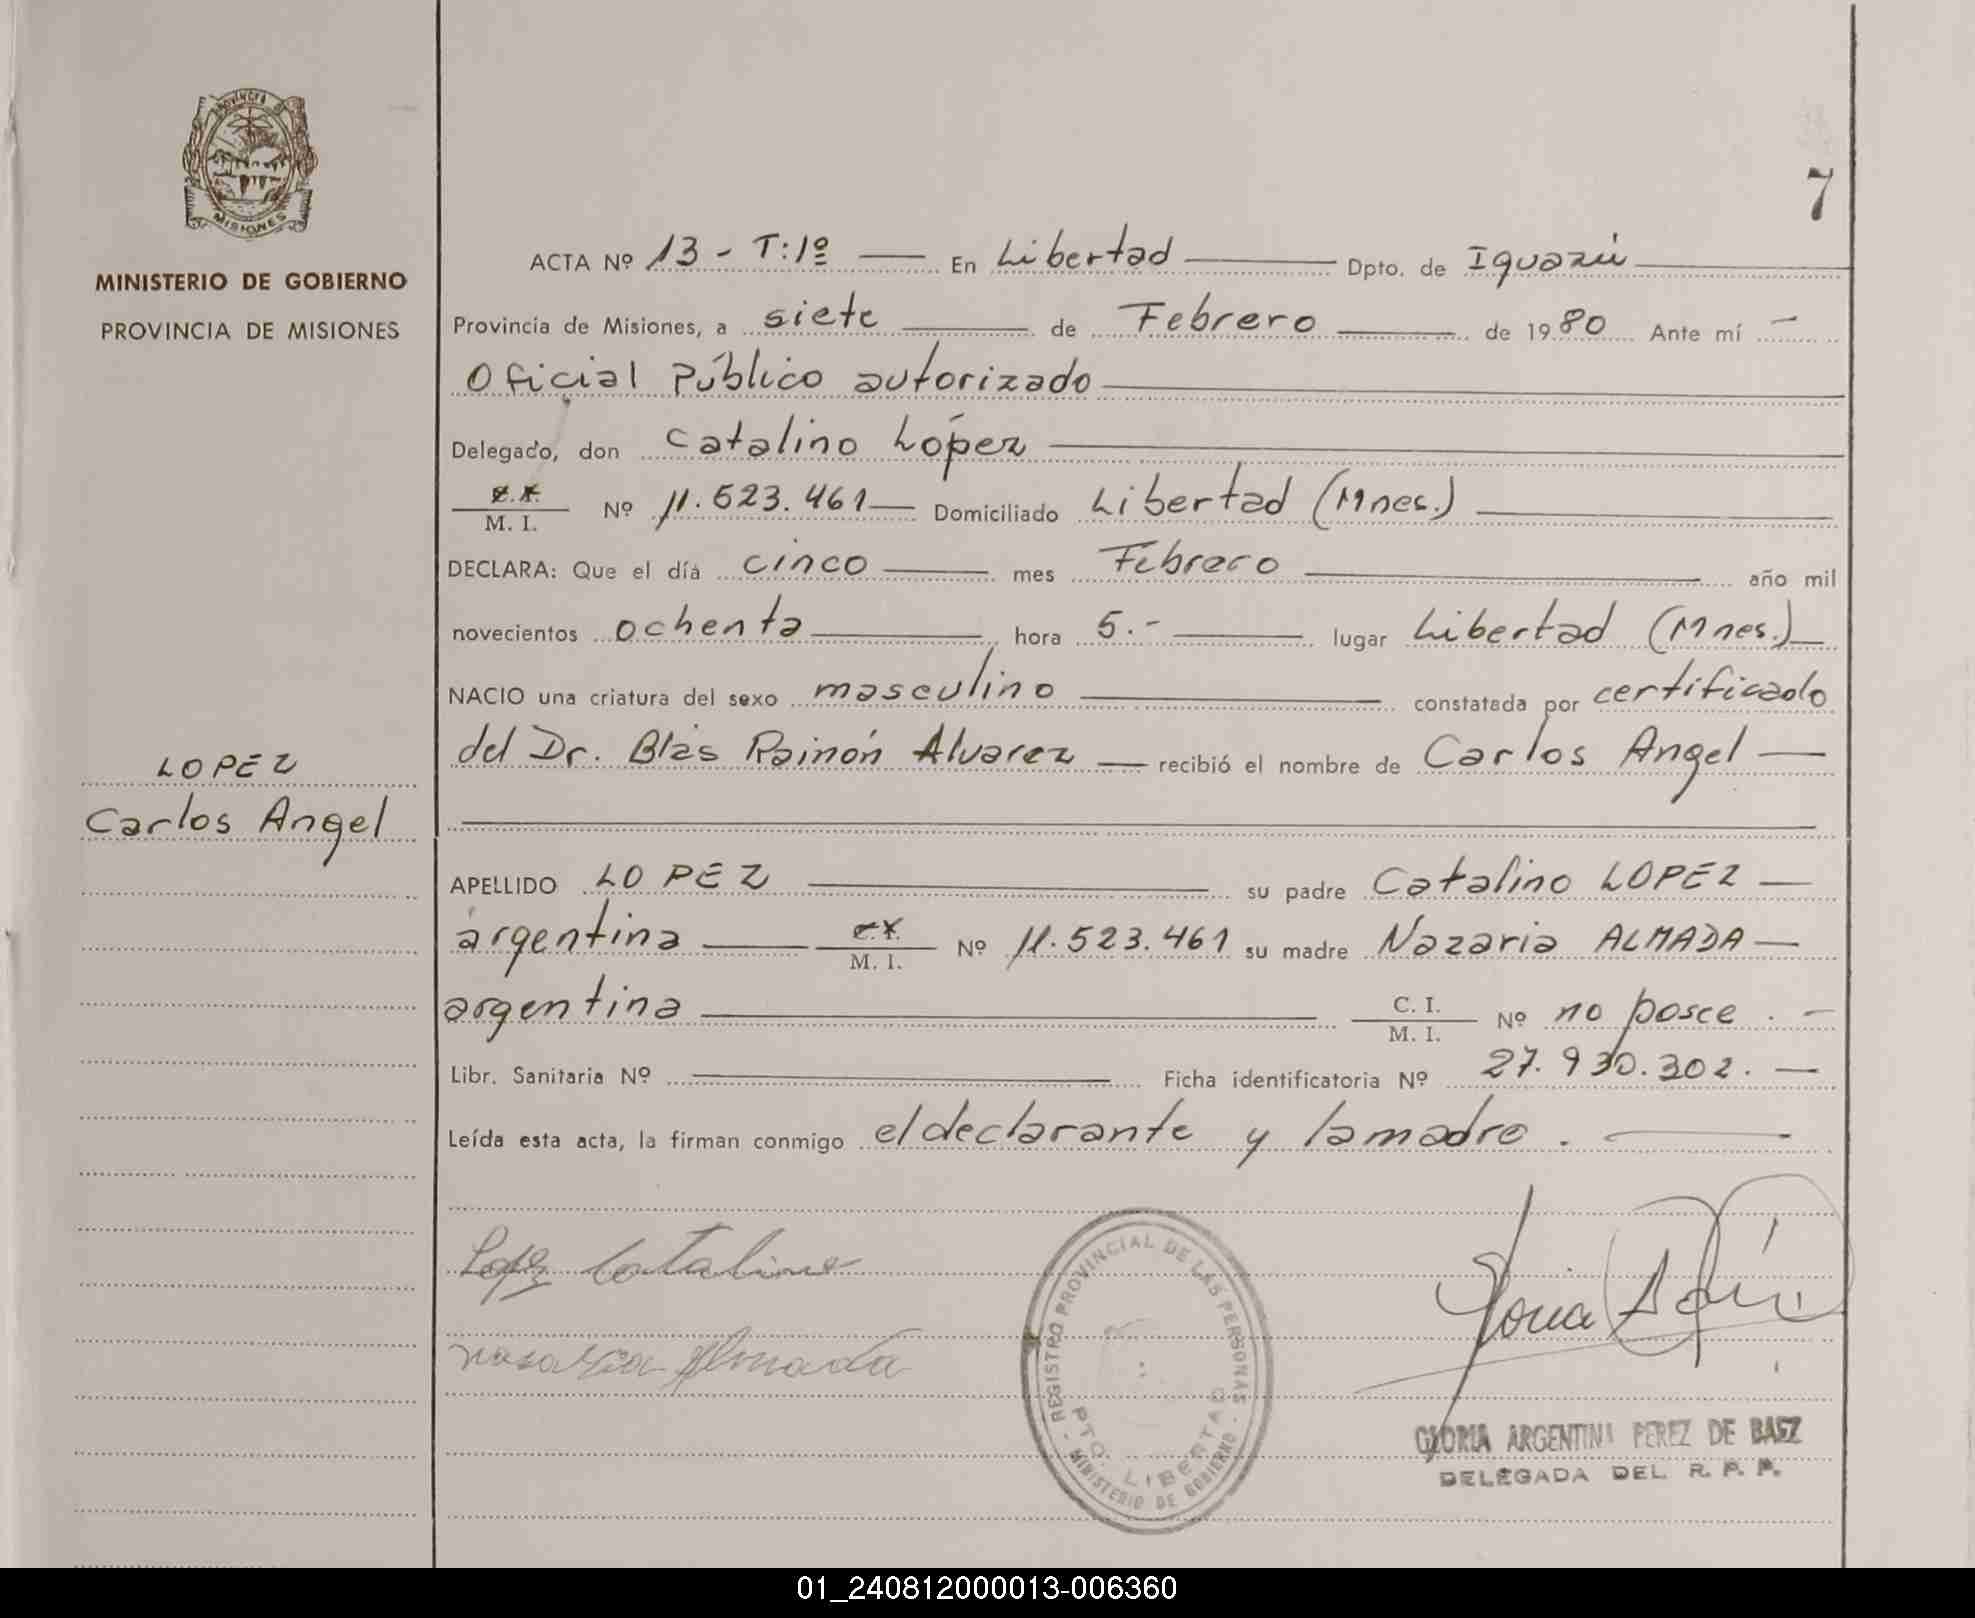 PROVINCIA DE
MISIONES
MINISTERIO DE GOBIERNO
PROVINCIA DE MISIONES
LOPEZ
Carlos Angel
7
ACTA Nº 13 - T:1º — En Libertad — Dpto. de Iguazú —
Provincia de Misiones, a siete — de Febrero — de 1980 Ante mí —
Oficial Público autorizado —
Delegado, don Catalino López —
C.I. Nº 11.523.461 — Domiciliado Libertad (Mnes.) —
M. I.
DECLARA: Que el día cinco — mes Febrero — año mil
novecientos ochenta — hora 5.- — lugar Libertad (Mnes.) —
NACIO una criatura del sexo masculino — constatada por certificado
del Dr. Blás Rainón Alvarez — recibió el nombre de Carlos Angel —
APELLIDO LOPEZ — su padre Catalino LOPEZ —
argentina — C.I. Nº 11.523.461 su madre Nazaria ALMADA —
M. I.
argentina — C. I. Nº no posee . -
M. I.
Libr. Sanitaria Nº — Ficha identificatoria Nº 27.930.302. —
Leída esta acta, la firman conmigo el declarante y la madre . —
Lopez Catalino
nasaria Almada
REGISTRO PROVINCIAL DE LAS PERSONAS
PTO. LIBERTAD
- MINISTERIO DE GOBIERNO -
GLORIA ARGENTINA PEREZ DE BAEZ
DELEGADA DEL R. P. P.
01_240812000013-006360